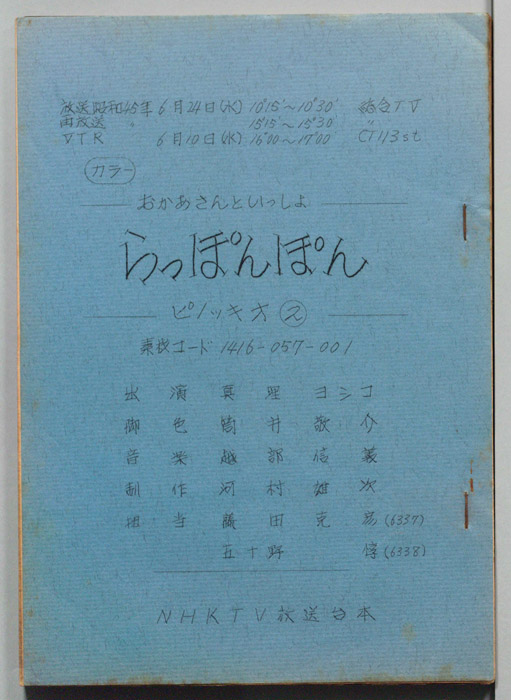 放送昭和45年 6月24日(水) 10°15'～10°30' 総合TV
再放送 〃 15°15'～15°30' 〃
VTR 6月10日(水) 16°00'～17°00' CT113st
カラー
おかあさんといっしょ
らっぽんぽん
ピノッキオ ②
東放コード 1416-057-001
出演 真理ヨシコ
脚色 筒井敬介
音楽 越部信義
制作 河村雄次
担当 藤田克彦(6337)
五十野惇(6338)
NHKTV放送台本